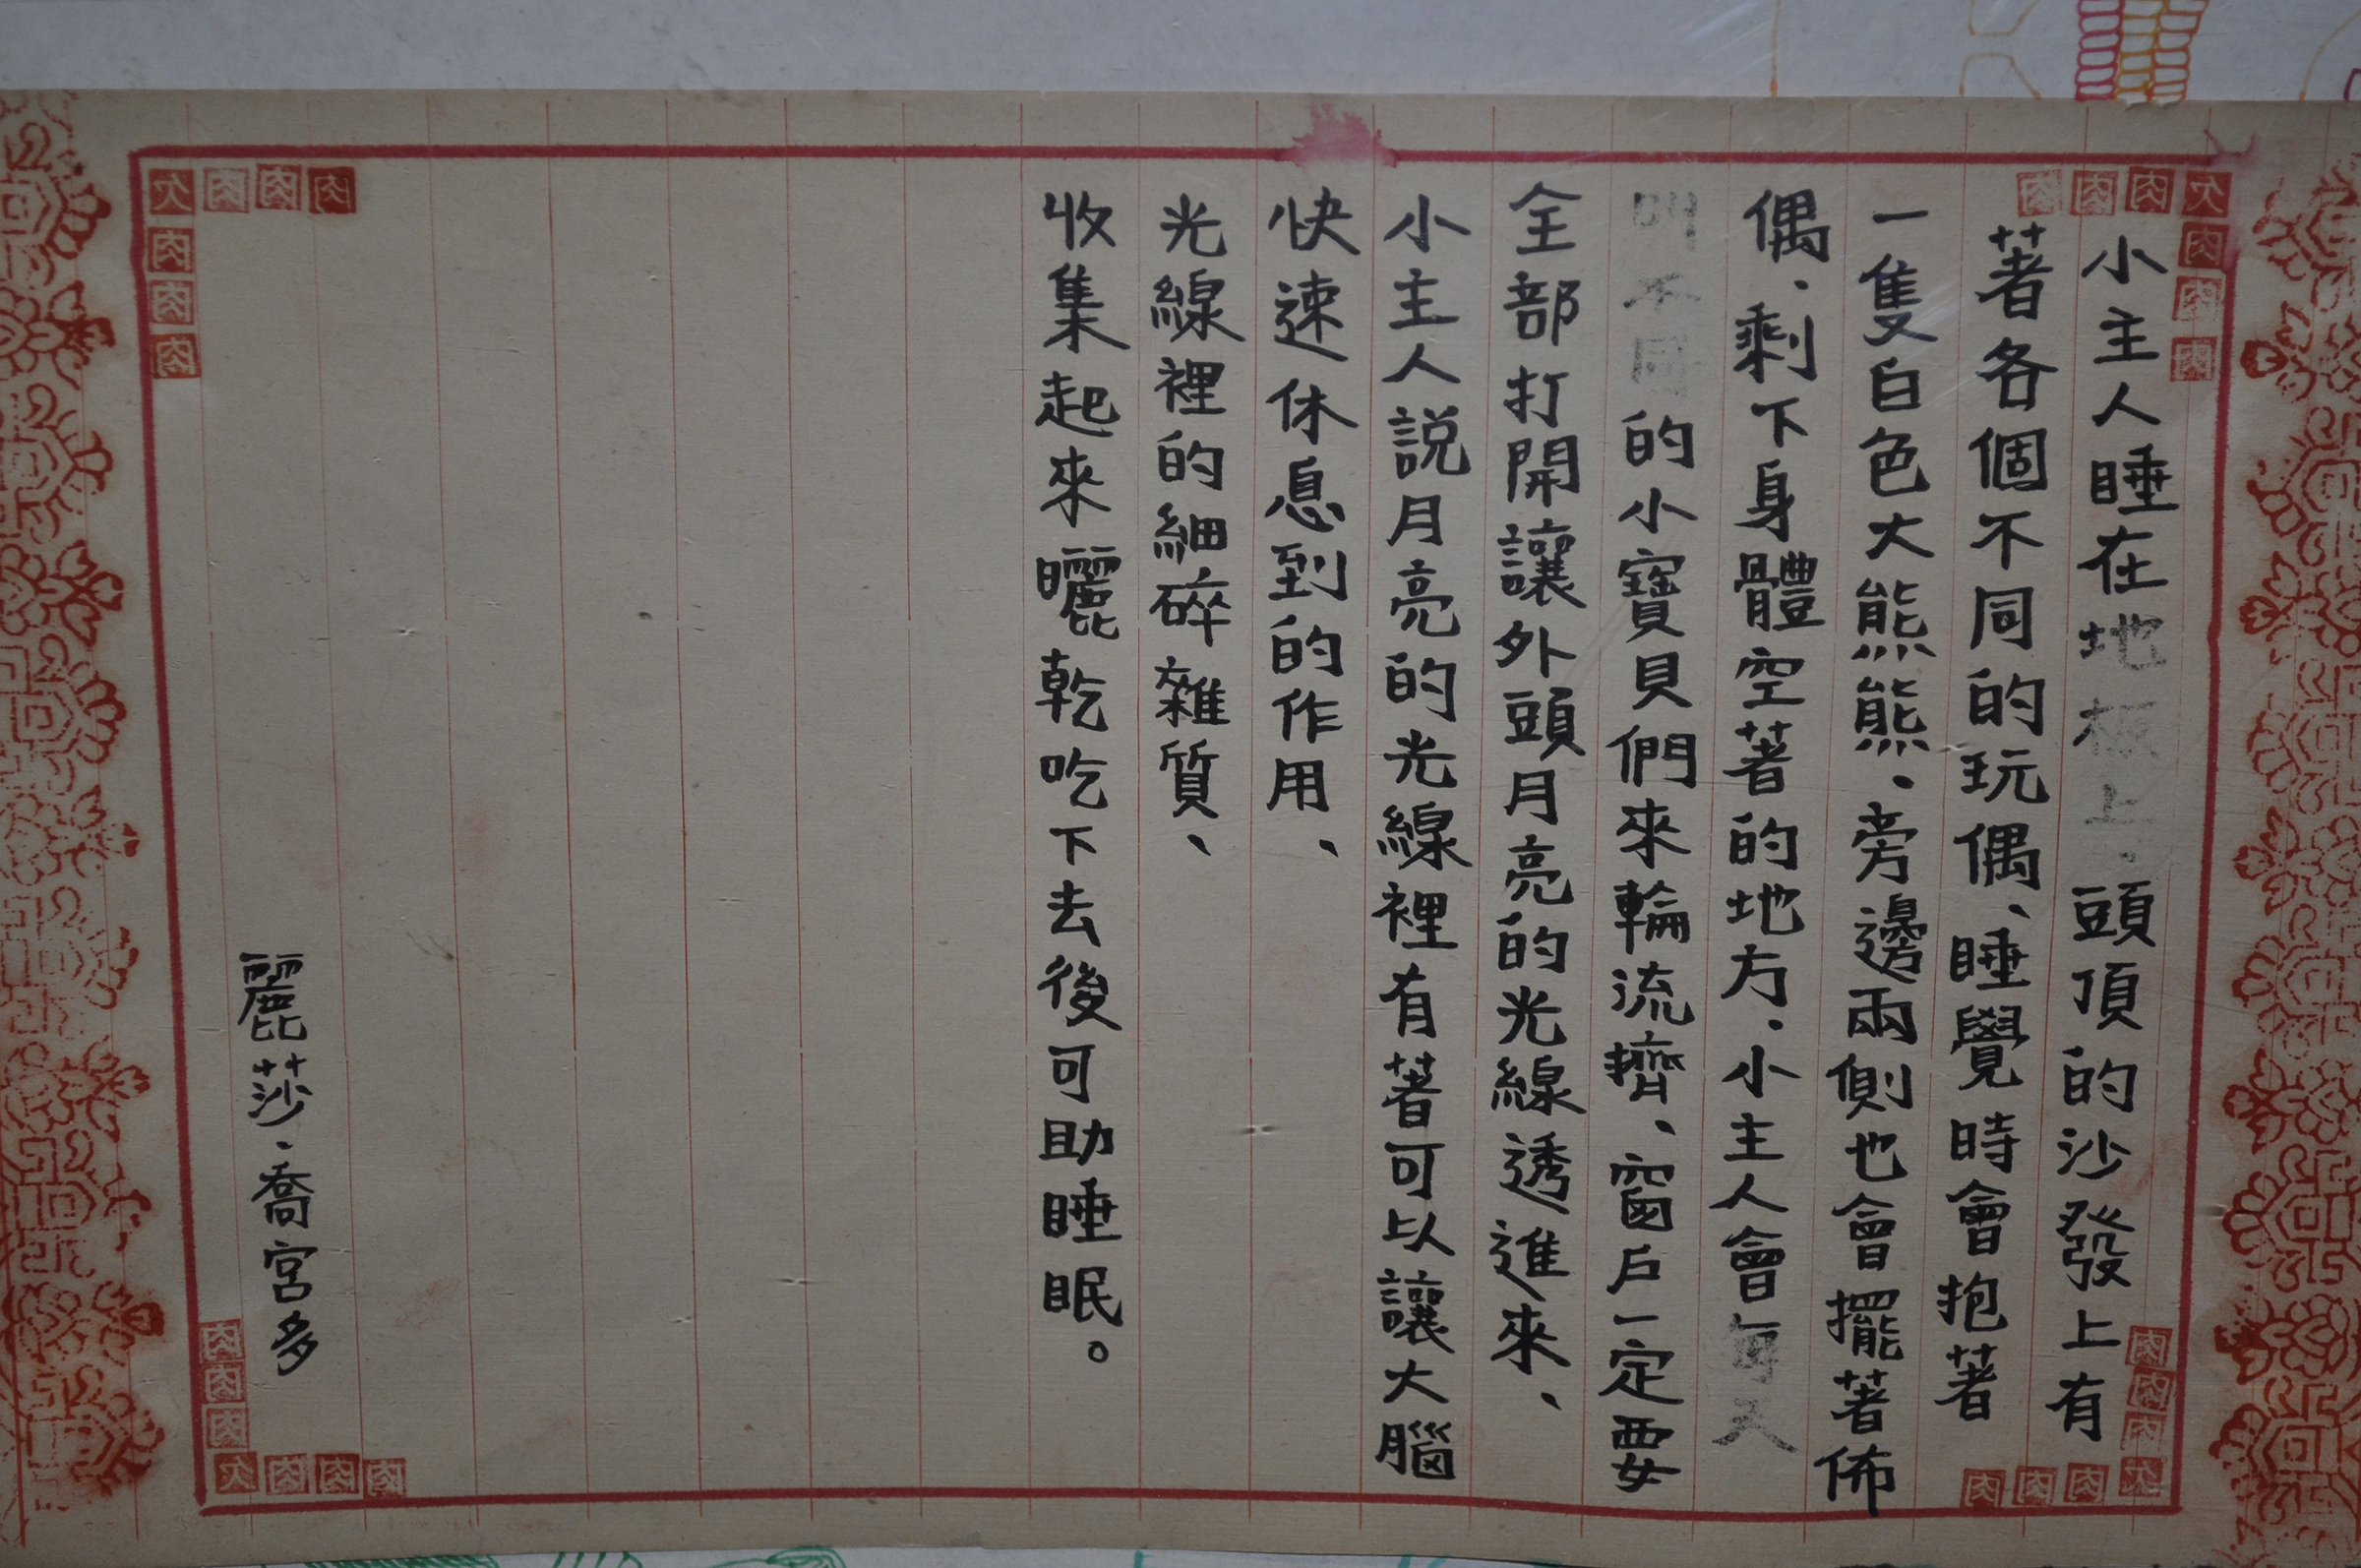 小主人睡在地板上、頭頂的沙發上有
著各個不同的玩偶、睡覺時會抱著
一隻白色大熊熊、旁邊兩側也會擺著佈
偶、剩下身體空著的地方、小主人會每天
叫不同的小寶貝們來輪流擠、窗戶一定要
全部打開讓外頭月亮的光線透進來、
小主人說月亮的光線裡有著可以讓大腦
快速休息到的作用、
光線裡的細碎雜質、
收集起來曬乾吃下去後可助睡眠。
麗莎·喬宮多